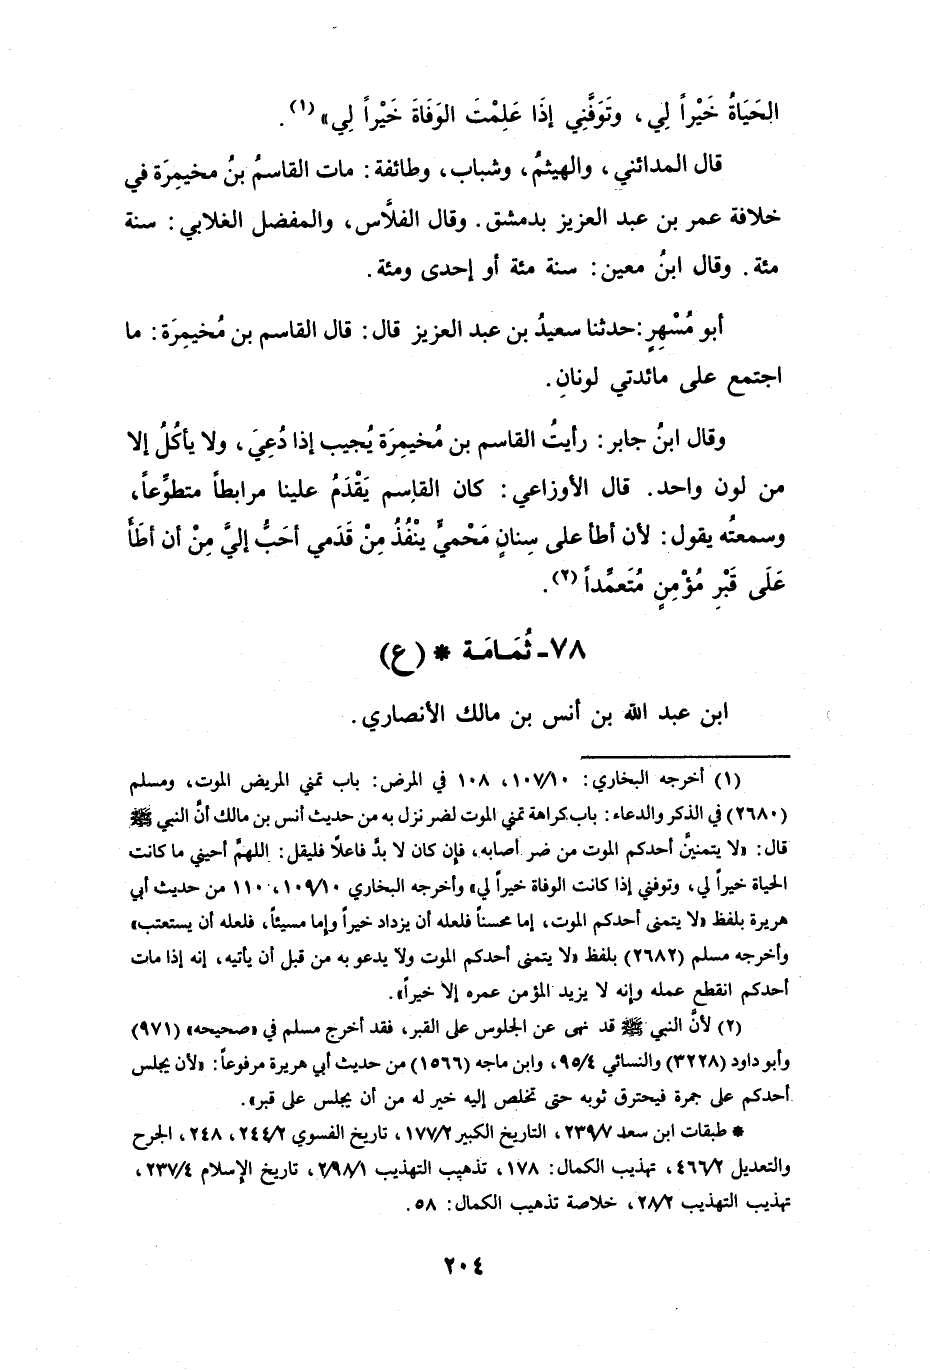 الحَيَاةُ خَيْراً لِي، وتَوَفَّنِي إذَا عَلِمْتَ الوَفَاةَ خَيْراً لِي» (١).
قال المدائني، والهيثمُ، وشباب، وطائفة: مات القاسمُ بنُ مخيمِرَة في
خلافة عمر بن عبد العزيز بدمشق. وقال الفلَّاس، والمفضل الغلابي: سنة
مئة. وقال ابنُ معين: سنة مئة أو إحدى ومئة.
أبو مُسْهِرٍ: حدثنا سعيدُ بن عبد العزيز قال: قال القاسم بن مُخيمِرَة: ما
اجتمع على مائدتي لونانِ.
وقال ابنُ جابر: رأيتُ القاسم بن مُخيمِرَة يُجيب إذا دُعِيَ، ولا يأكُلُ إلا
من لون واحد. قال الأوزاعي: كان القاسم يَقْدَمُ علينا مرابطاً متطوِّعاً،
وسمعتُه يقول: لأن أطأ على سِنانٍ مَحْميٍّ ينْفُذُ مِنْ قَدَمي أحَبُّ إليَّ مِنْ أن أطَأَ
عَلَى قَبْرِ مُؤْمِنٍ مُتَعمِّداً (٢).
٧٨- ثُمَـامَـة * (ع)
ابن عبد الله بن أنس بن مالك الأنصاري.
(١) أخرجه البخاري: ١٠٧/١٠، ١٠٨ في المرض: باب تمني المريض الموت، ومسلم
(٢٦٨٠) في الذكر والدعاء: باب كراهة تمني الموت لضر نزل به من حديث أنس بن مالك أنَّ النبي ﷺ
قال: «لا يتمنينَّ أحدكم الموت من ضر أصابه، فإن كان لا بدَّ فاعلاً فليقل: اللهمَّ أحيني ما كانت
الحياة خيراً لي، وتوفني إذا كانت الوفاة خيراً لي» وأخرجه البخاري ١٠٩/١٠، ١١٠ من حديث أبي
هريرة بلفظ «لا يتمنى أحدكم الموت، إما محسناً فلعله أن يزداد خيراً وإما مسيئاً، فلعله أن يستعتب»
وأخرجه مسلم (٢٦٨٢) بلفظ «لا يتمنى أحدكم الموت ولا يدعو به من قبل أن يأتيه، إنه إذا مات
أحدكم انقطع عمله وإنه لا يزيد المؤمن عمره إلا خيراً».
(٢) لأنَّ النبي ﷺ قد نهى عن الجلوس على القبر، فقد أخرج مسلم في «صحيحه» (٩٧١)
وأبو داود (٣٢٢٨) والنسائي ٩٥/٤، وابن ماجه (١٥٦٦) من حديث أبي هريرة مرفوعاً: «لأن يجلس
أحدكم على جمرة فيحترق ثوبه حتى تخلص إليه خير له من أن يجلس على قبر».
* طبقات ابن سعد ٢٣٩/٧، التاريخ الكبير ١٧٧/٢، تاريخ الفسوي ٢٤٤/٢، ٢٤٨، الجرح
والتعديل ٤٦٦/٢، تهذيب الكمال: ١٧٨، تذهيب التهذيب ٢/٩٨/١، تاريخ الإسلام ٢٣٧/٤،
تهذيب التهذيب ٢٨/٢، خلاصة تذهيب الكمال: ٥٨.
٢٠٤